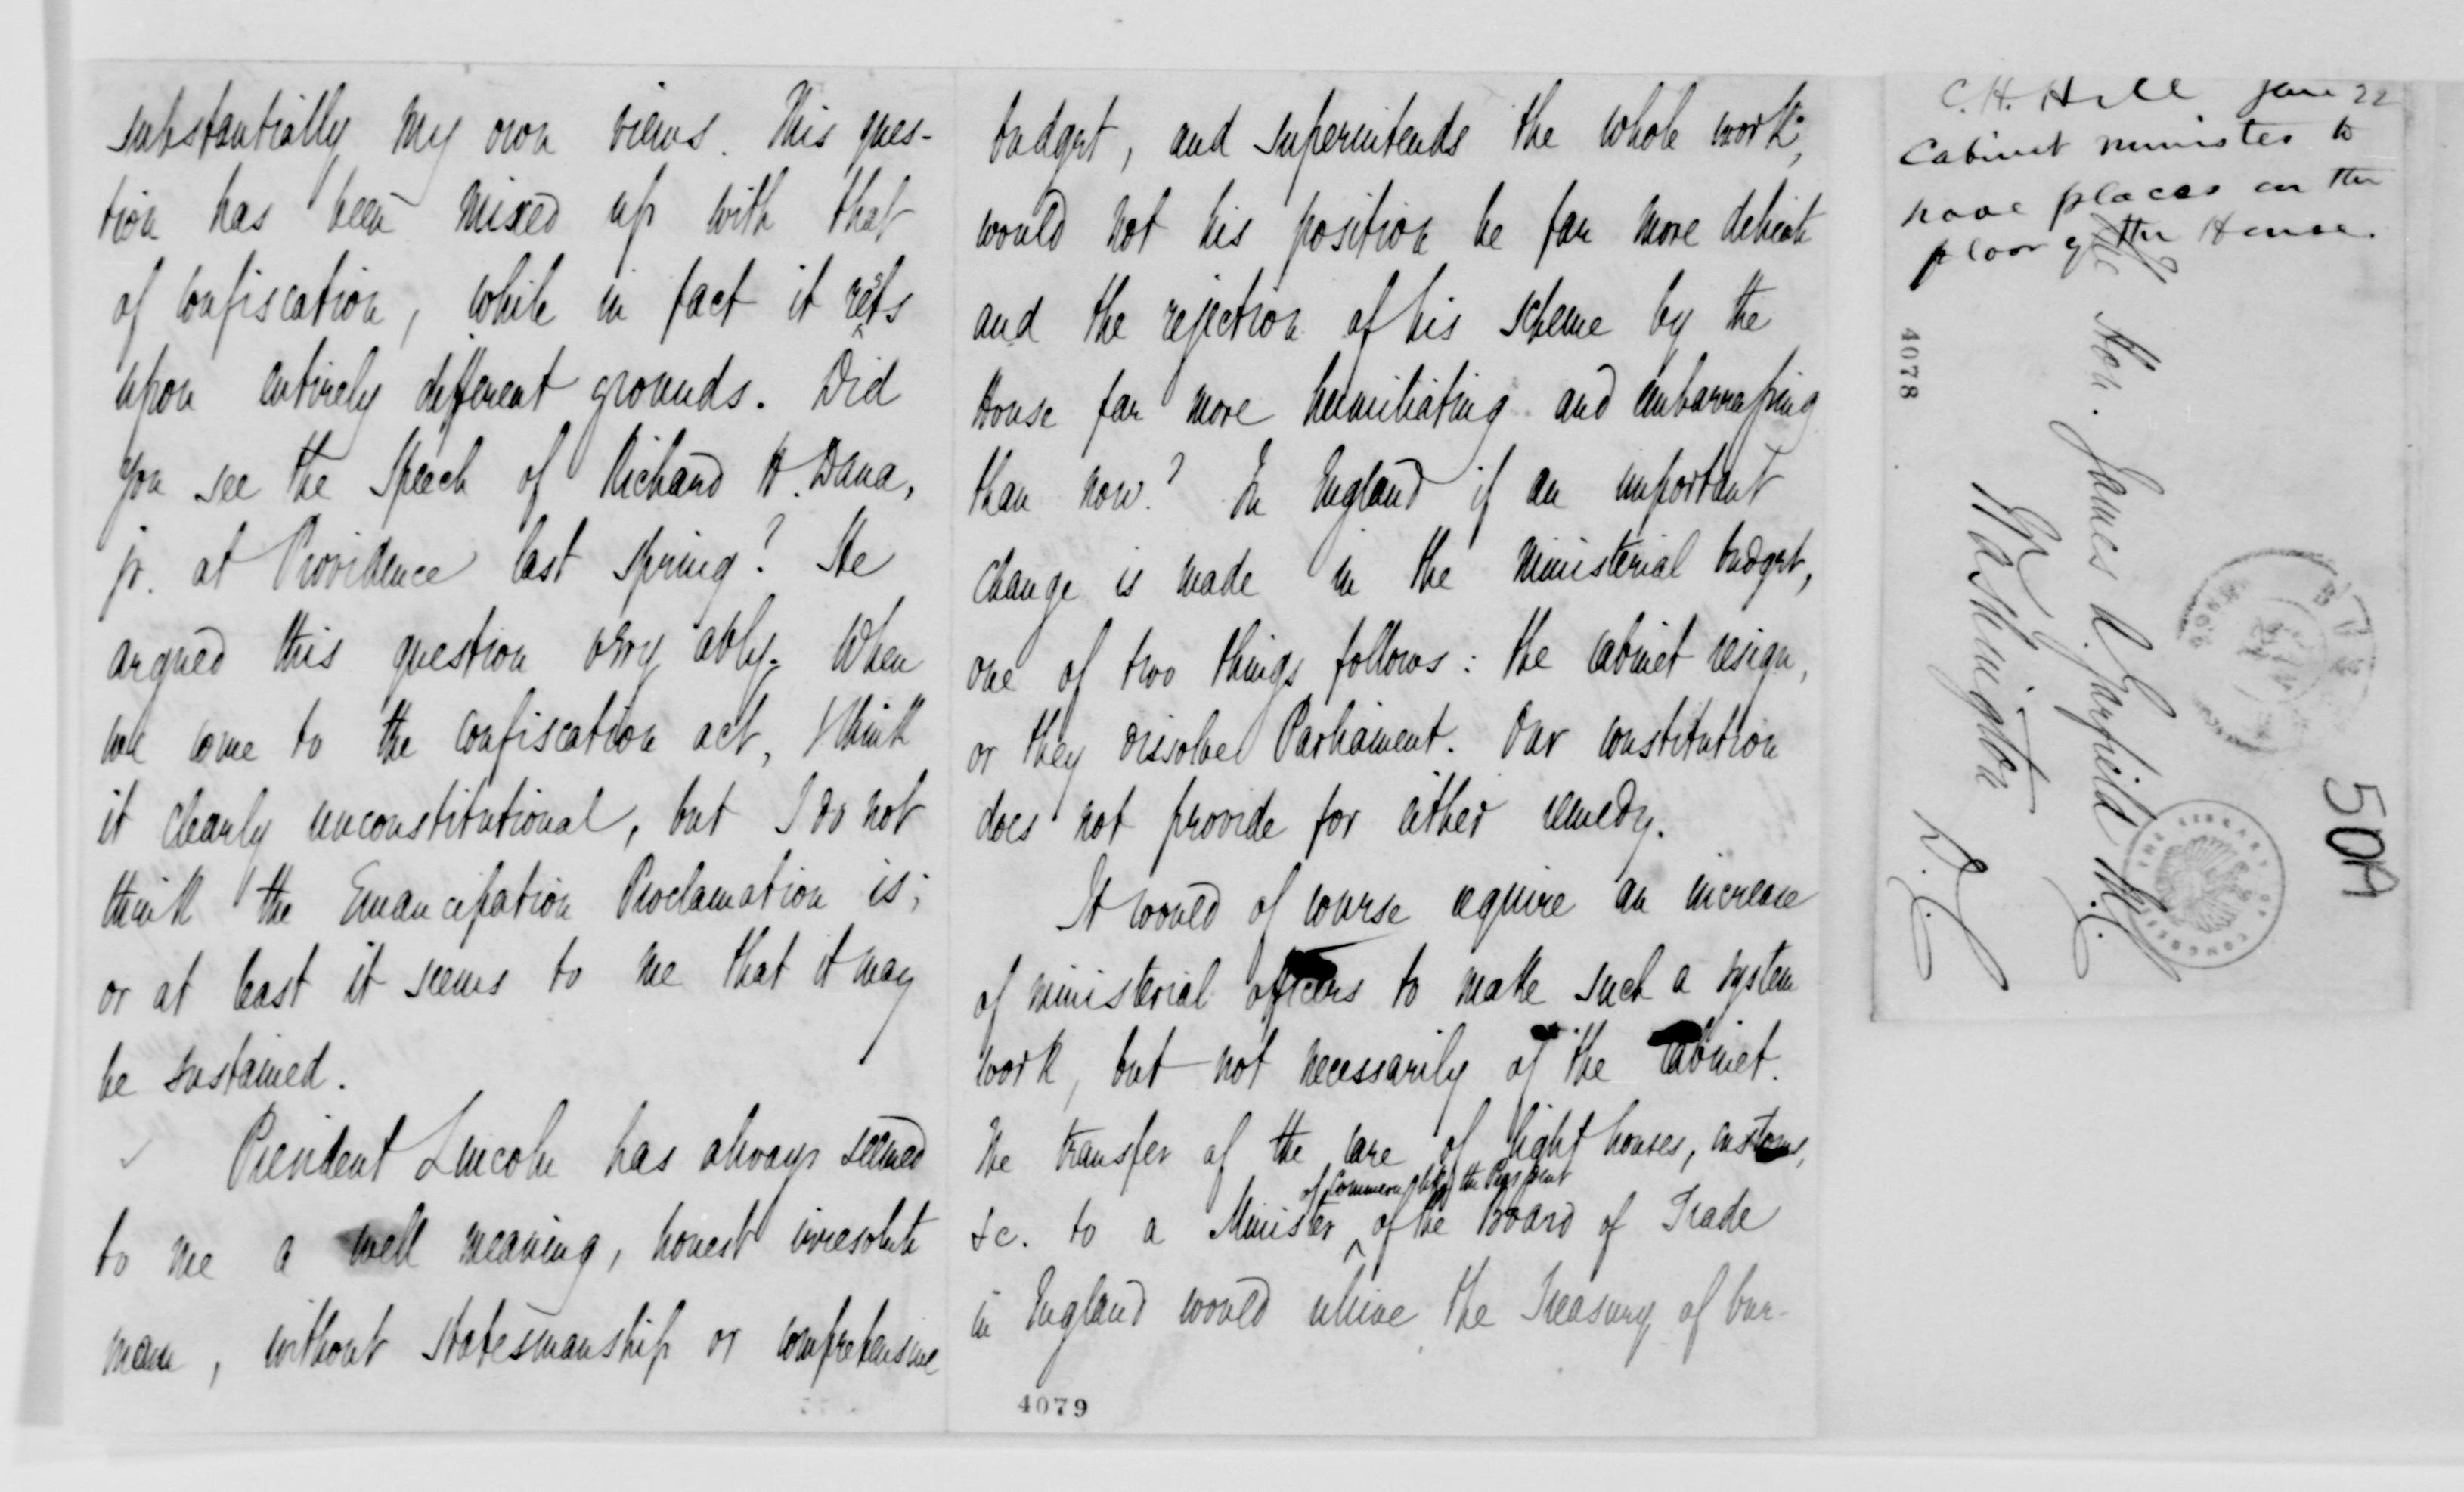 substantially my own views. This ques-
tion has been mixed up with that
of confiscation, while in fact it rests
upon entirely different grounds. Did
you see the speech of Richard H. Dana,
jr. at Providence last spring? He
argued this question very ably. When
we come to the confiscation act, I think
it clearly unconstitutional, but I do not
think the Emancipation Proclamation is;
or at least it seems to me that it may
be sustained.
President Lincoln has always seemed
to me a well meaning, honest irresolute
man, without statesmanship or comprehensive
budget, and superintends the whole work,
would not his position be far more delicate
and the rejection of his scheme by the
House far more humiliating and embarrassing
than now? In England if an important
change is made in the ministerial budget,
one of two things follows: the cabinet resign,
or they dissolve Parliament. Our constitution
does not provide for either remedy.
It would of course require an increase
of ministerial officers to make such a system
work, but not necessarily of the Cabinet.
The transfer of the care of light houses, customs,
of Commerce the President
&c. to a Minister of the Board of Trade
in England would relieve the Treasury of bur-
4079
C. H. Hill Jan 22
Cabinet ministers to
have places on the
floor of the House.
4078
The
Hon. James A. Garfield M.C.
Washington
D.C.
THE LIBRARY OF CONGRESS
50A